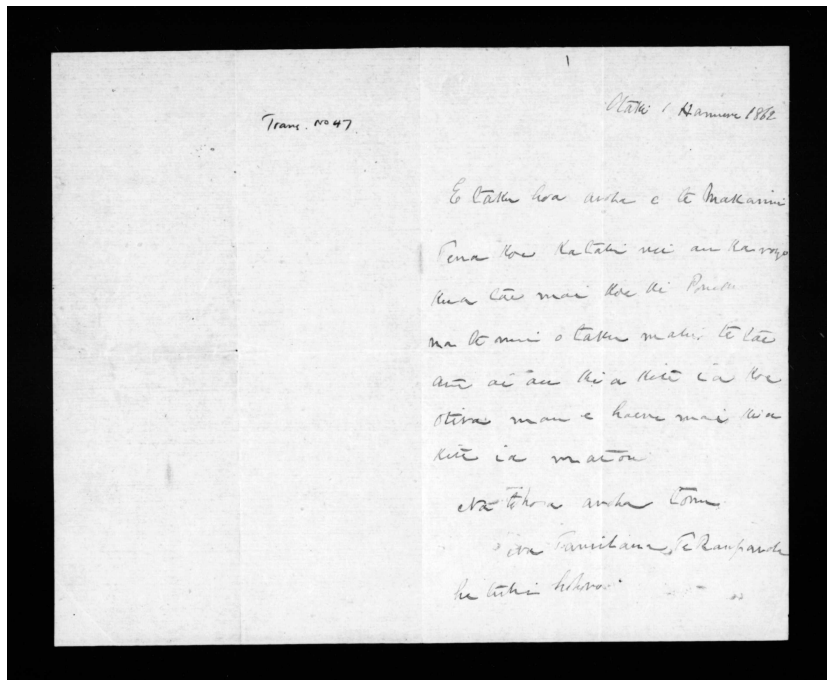 Trans. No 47
Otaki 1 Hanuere 1862
E taku hoa aroha e te Makarini
Tena koe Katahi nei au ka rongo
kua tae mai koe ki
na te nui o taku mahi te tae
atu ai au kia kite ia koe
otira mau e haere mai kia
kite ia matou
Na to hoa aroha tonu
Na Tamihana Te Rauparaha
he tuhi hohoro